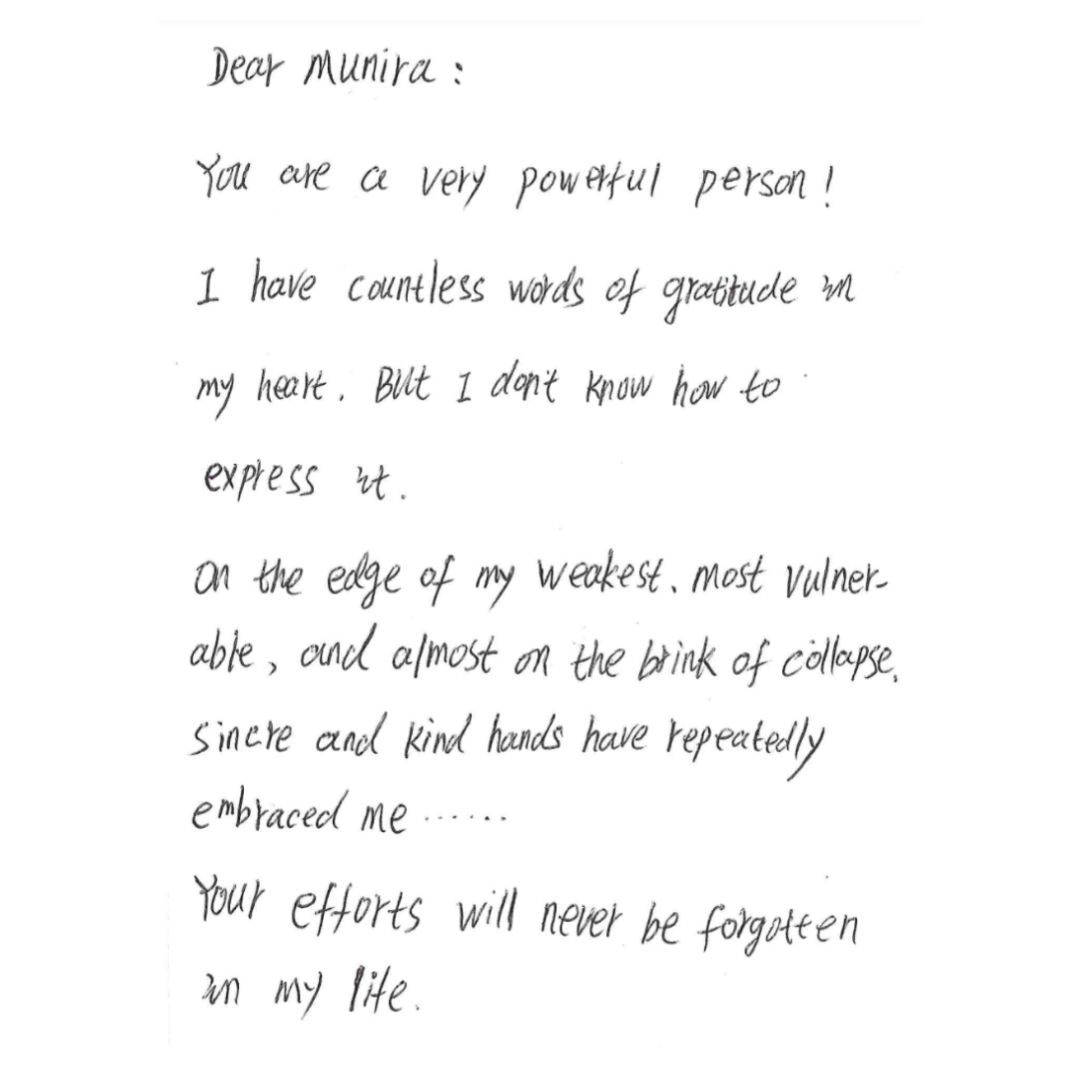 Dear Munira :
You are a very powerful person !
I have countless words of gratitude in
my heart. But I don't know how to
express it.
On the edge of my weakest, most vulner-
able, and almost on the brink of collapse,
sincre and kind hands have repeatedly
embraced me ......
Your efforts will never be forgotten
in my life.